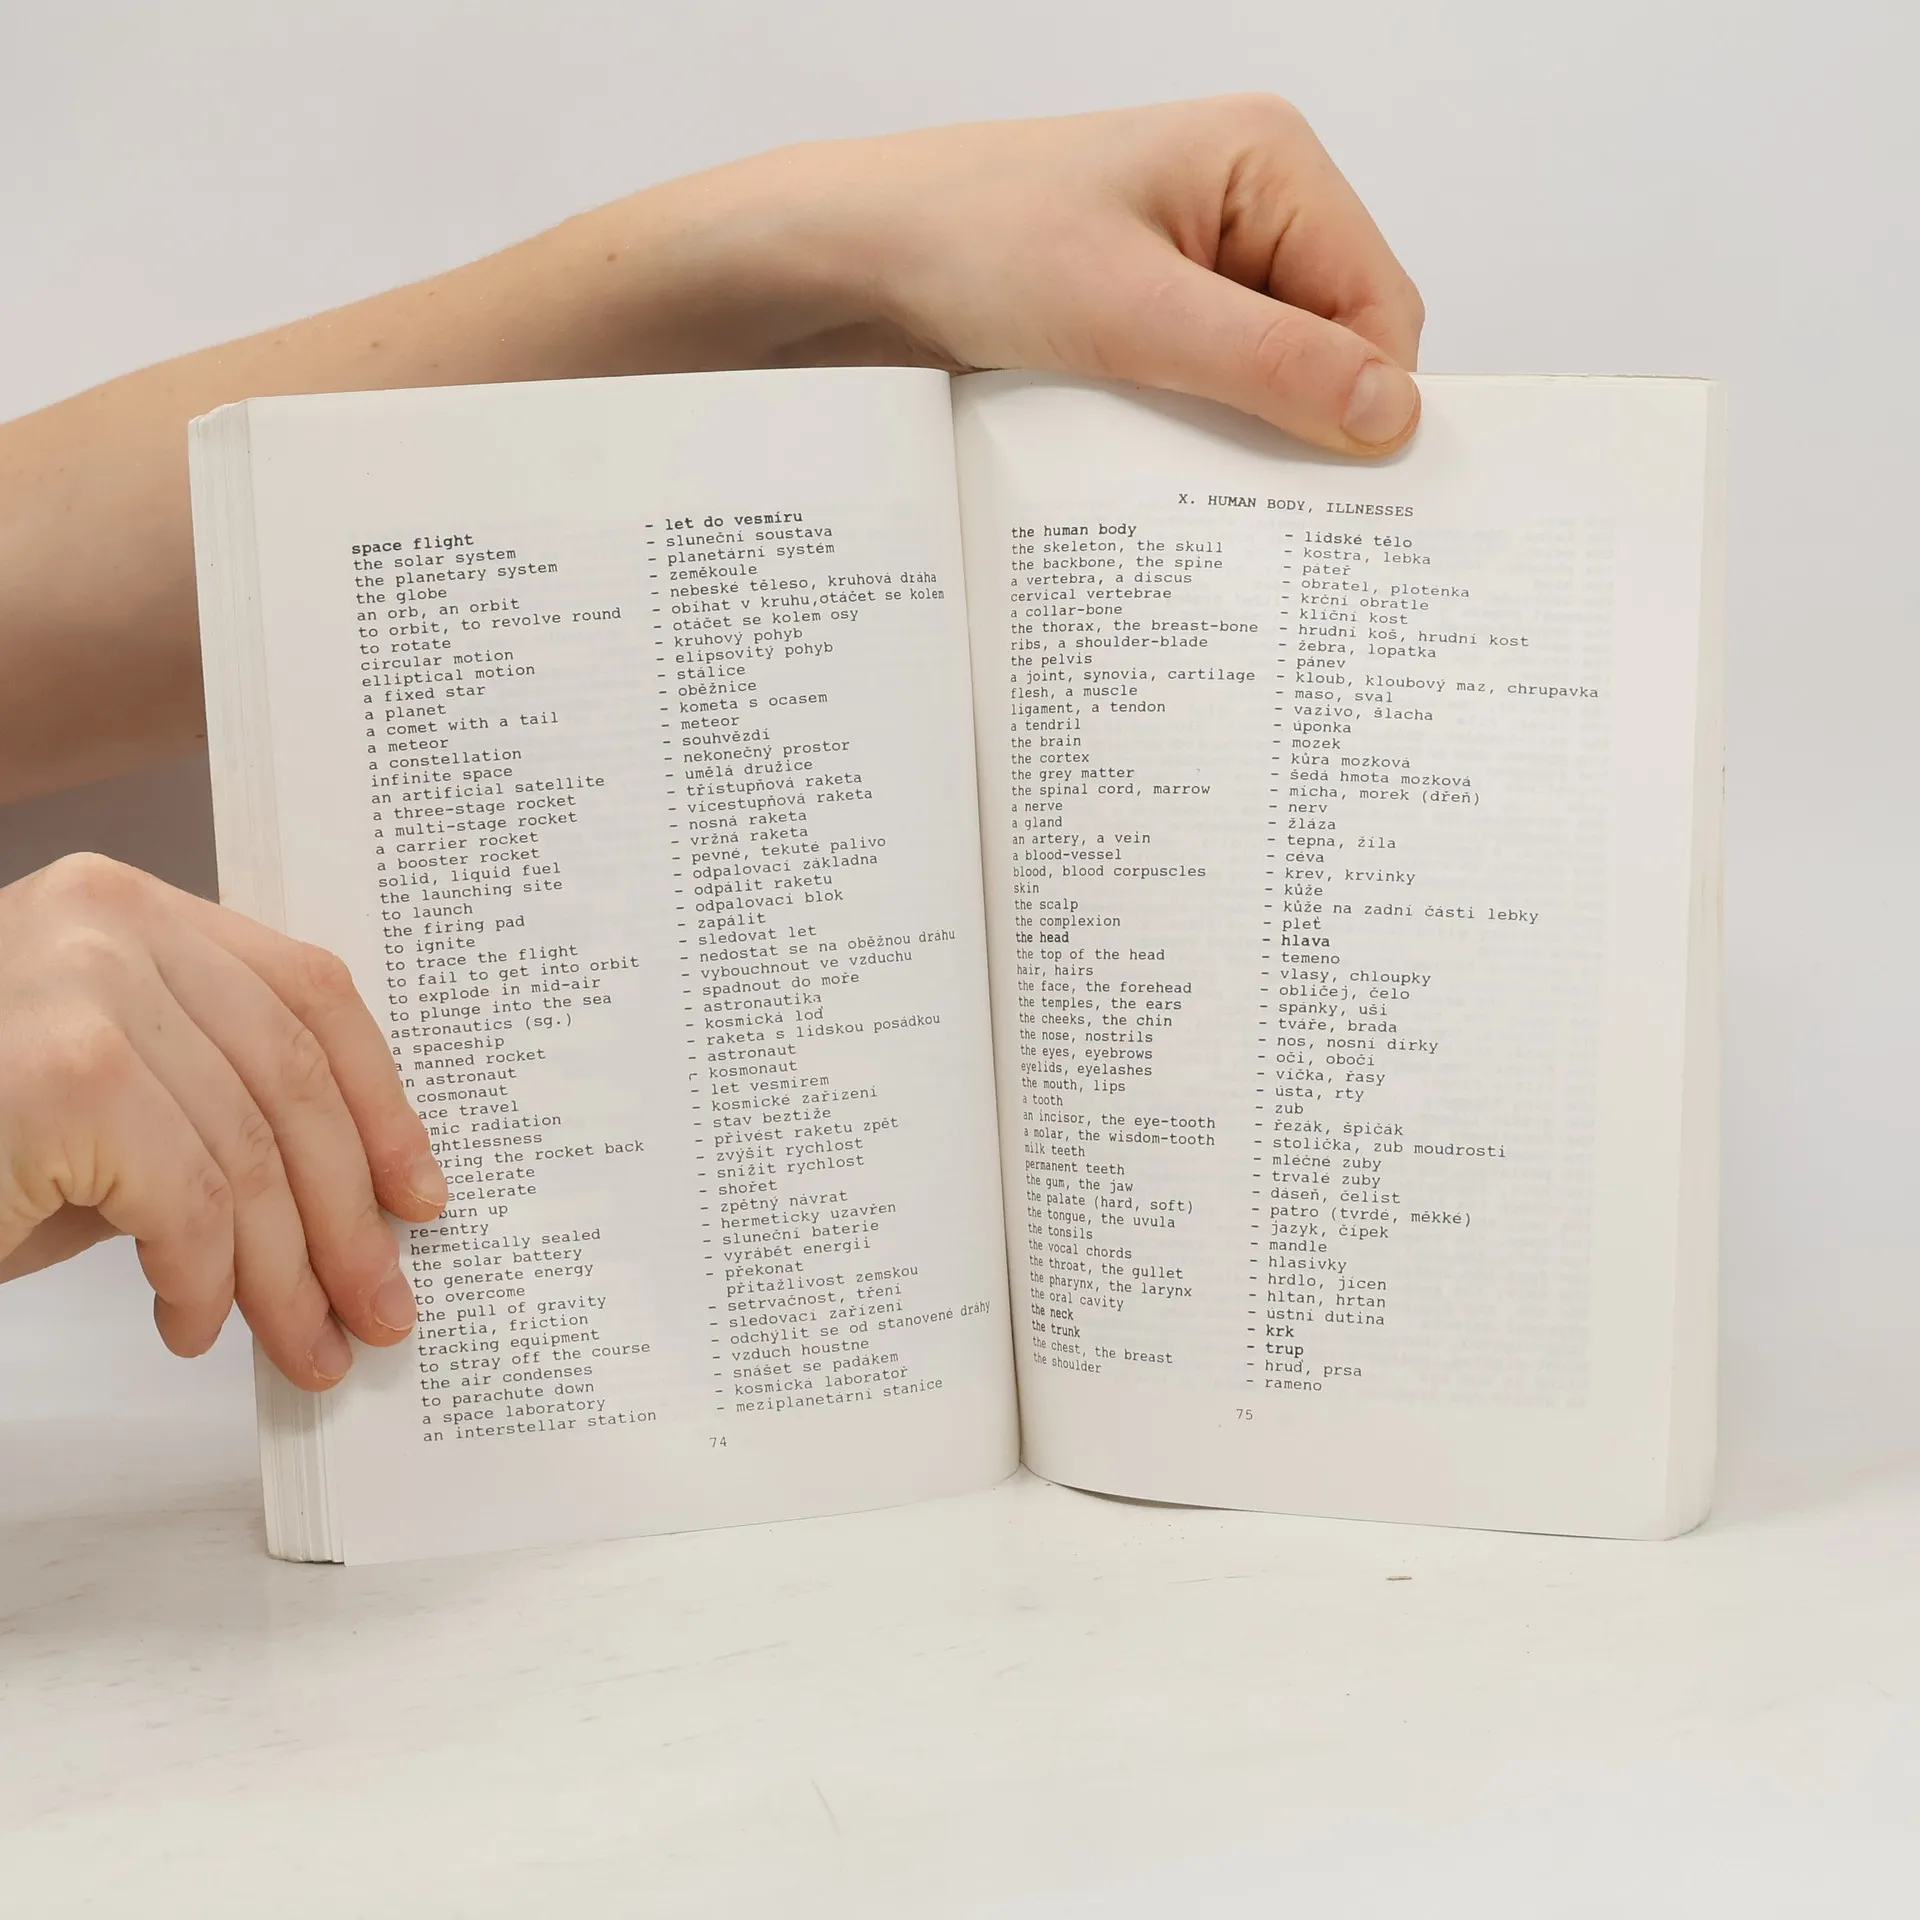 space flight - let do vesmíru
the solar system - sluneční soustava
the planetary system - planetární systém
the globe - zeměkoule
an orb, an orbit - nebeské těleso, kruhová dráha
to orbit, to revolve round - obíhat v kruhu,otáčet se kolem
to rotate - otáčet se kolem osy
circular motion - kruhový pohyb
elliptical motion - elipsovitý pohyb
a fixed star - stálice
a planet - oběžnice
a comet with a tail - kometa s ocasem
a meteor - meteor
a constellation - souhvězdí
infinite space - nekonečný prostor
an artificial satellite - umělá družice
a three-stage rocket - třístupňová raketa
a multi-stage rocket - vícestupňová raketa
a carrier rocket - nosná raketa
a booster rocket - vržná raketa
solid, liquid fuel - pevné, tekuté palivo
the launching site - odpalovací základna
to launch - odpálit raketu
the firing pad - odpalovací blok
to ignite - zapálit
to trace the flight - sledovat let
to fail to get into orbit - nedostat se na oběžnou dráhu
to explode in mid-air - vybouchnout ve vzduchu
to plunge into the sea - spadnout do moře
astronautics (sg.) - astronautika
a spaceship - kosmická loď
a manned rocket - raketa s lidskou posádkou
astronaut - astronaut
cosmonaut - kosmonaut
travel - let vesmírem
radiation - kosmické zařízení
- stav beztíže
the rocket back - přivést raketu zpět
- zvýšit rychlost
- snížit rychlost
burn up - shořet
re-entry - zpětný návrat
hermetically sealed - hermeticky uzavřen
the solar battery - sluneční baterie
to generate energy - vyrábět energii
to overcome - překonat
the pull of gravity přitažlivost zemskou
inertia, friction - setrvačnost, tření
tracking equipment - sledovací zařízení
to stray off the course - odchýlit se od stanovené dráhy
the air condenses - vzduch houstne
to parachute down - snášet se padákem
a space laboratory - kosmická laboratoř
an interstellar station - meziplanetární stanice
74
X. HUMAN BODY, ILLNESSES
the human body - lidské tělo
the skeleton, the skull - kostra, lebka
the backbone, the spine - páteř
a vertebra, a discus - obratel, plotenka
cervical vertebrae - krční obratle
a collar-bone - klíční kost
the thorax, the breast-bone - hrudní koš, hrudní kost
ribs, a shoulder-blade - žebra, lopatka
the pelvis - pánev
a joint, synovia, cartilage - kloub, kloubový maz, chrupavka
flesh, a muscle - maso, sval
ligament, a tendon - vazivo, šlacha
a tendril - úponka
the brain - mozek
the cortex - kůra mozková
the grey matter - šedá hmota mozková
the spinal cord, marrow - mícha, morek (dřeň)
a nerve - nerv
a gland - žláza
an artery, a vein - tepna, žíla
a blood-vessel - céva
blood, blood corpuscles - krev, krvinky
skin - kůže
the scalp - kůže na zadní části lebky
the complexion - pleť
the head - hlava
the top of the head - temeno
hair, hairs - vlasy, chloupky
the face, the forehead - obličej, čelo
the temples, the ears - spánky, uši
the cheeks, the chin - tváře, brada
the nose, nostrils - nos, nosní dírky
the eyes, eyebrows - oči, obočí
eyelids, eyelashes - víčka, řasy
the mouth, lips - ústa, rty
a tooth - zub
an incisor, the eye-tooth - řezák, špičák
a molar, the wisdom-tooth - stolička, zub moudrosti
milk teeth - mléčné zuby
permanent teeth - trvalé zuby
the gum, the jaw - dáseň, čelist
the palate (hard, soft) - patro (tvrdé, měkké)
the tongue, the uvula - jazyk, čípek
the tonsils - mandle
the vocal chords - hlasivky
the throat, the gullet - hrdlo, jícen
the pharynx, the larynx - hltan, hrtan
the oral cavity - ústní dutina
the neck - krk
the trunk - trup
the chest, the breast - hruď, prsa
the shoulder - rameno
75